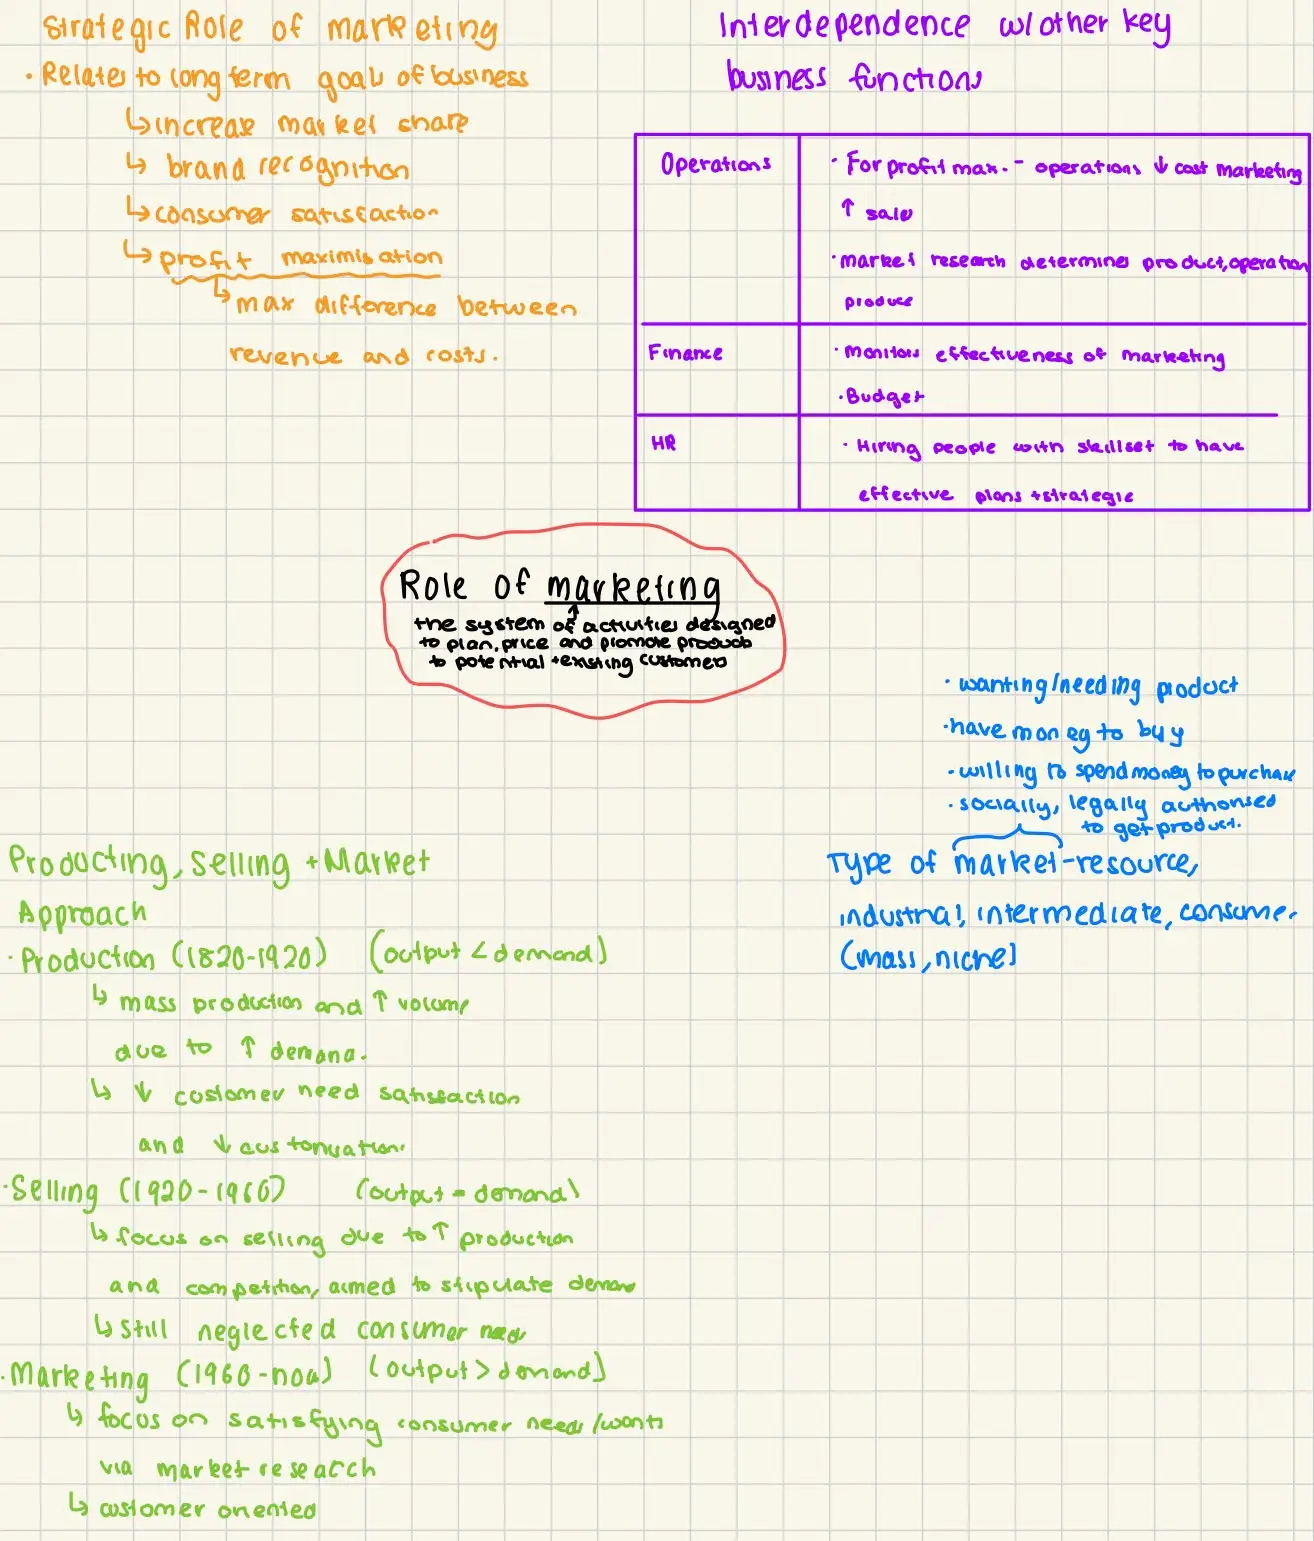 Strategic Role of marketing
• Relates to long term goal of business
↳ increase market share
↳ brand recognition
↳ consumer satisfaction
↳ profit maximisation
↳ max difference between
revenue and costs.
Interdependence w/other key
business functions
Operations
• For profit max. - operations ↓ cost marketing
↑ sales
• market research determines product, operation
produce
Finance
• Monitors effectiveness of marketing
• Budget
HR
• Hiring people with skillset to have
effective plans + strategie
Role of marketing
the system of activities designed
to plan, price and promote products
to potential + existing customers
• wanting/needing product
• have money to buy
• willing to spend money to purchase
• socially, legally authorised
to get product.
Type of market - resource,
industrial, intermediate, consumer
(mass, niche)
Producting, selling + Market
Approach
• Production (1820-1920) (output < demand)
↳ mass production and ↑ volume
due to ↑ demand.
↳ ↓ customer need satisfaction
and ↓
• Selling (1920-1960) (output = demand)
↳ focus on selling due to ↑ production
and competition, aimed to stipulate demand
↳ still neglected consumer needs
• Marketing (1960-now) (output > demand)
↳ focus on satisfying consumer needs/wants
via market research
↳ customer oriented